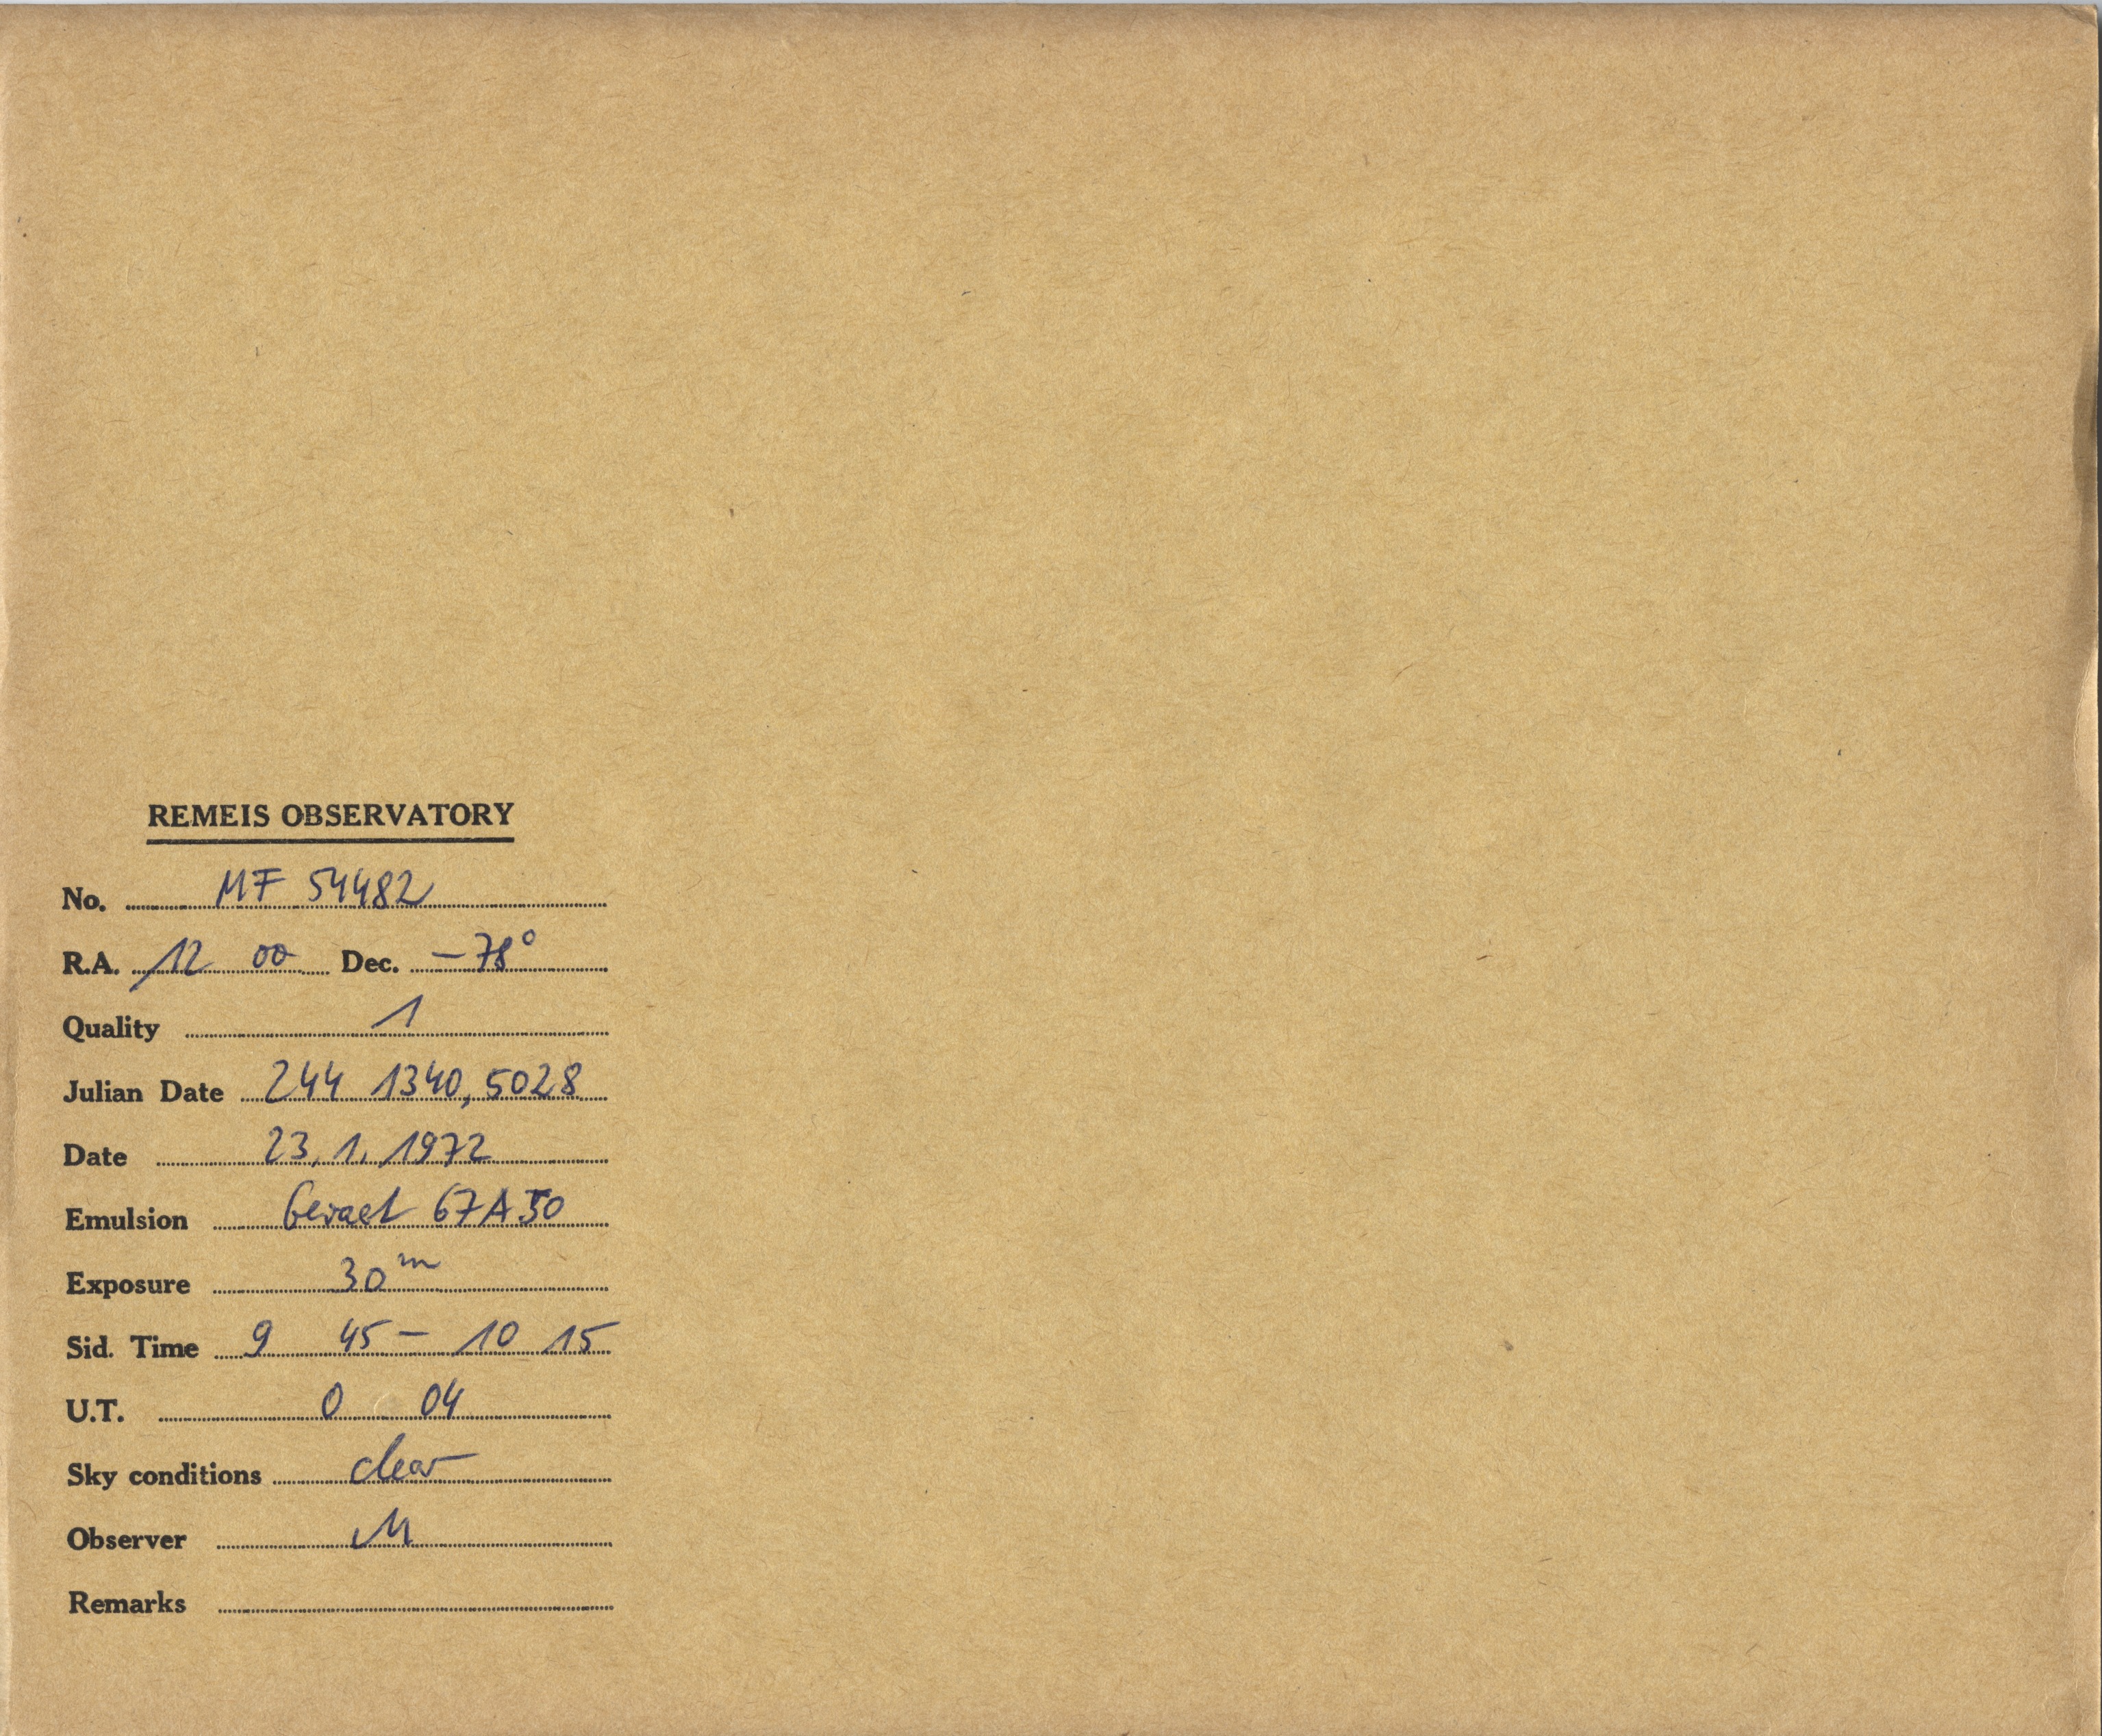 REMEIS OBSERVATORY
No. MF 54482
R.A. 12 00 Dec. -78°
Quality 1
Julian Date 244 1340,5028
Date 23.1.1972
Emulsion Gevaet 67A50
Exposure 30m
Sid. Time 9 45 - 10 15
U.T. 0 04
Sky conditions clear
Observer M
Remarks